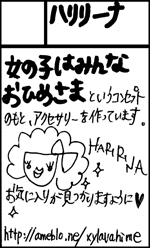 ハリリーナ
女の子はみんな
おひめさまというコンセプト
のもと、アクセサリーを作っています。
HARIRINA
お気に入りが見つかりますように♥
http://ameblo.ne/xylavahime